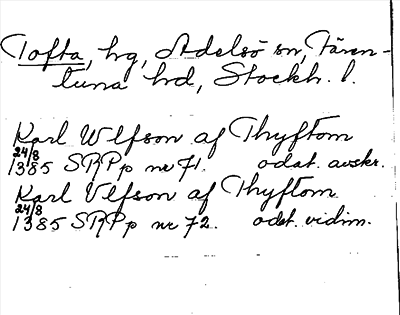 Tofta, hg, Adelsö sn, Fären-
tuna hd, Stockh. l.
Karl Wlfson af Thyftom
24/8
1385 SRPp nr 71. odat. avskr.
Karl Vlfson af Thyftom
24/8
1385 SRPp nr 72. odat. vidim.